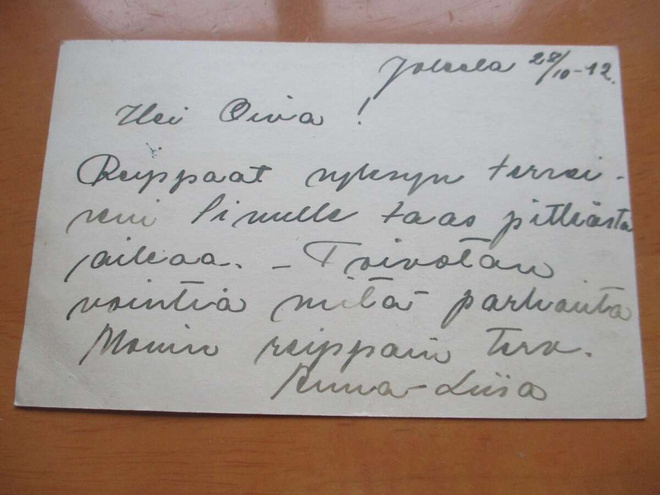 Jokela 28/10-42.
Hei Oiva!
Reippaat syksyn tervei-
seni Sinulle taas pitkästä
aikaa. – Toivotan
vointia mitä parhainta
Monin reippain terv.
Anna-Liisa